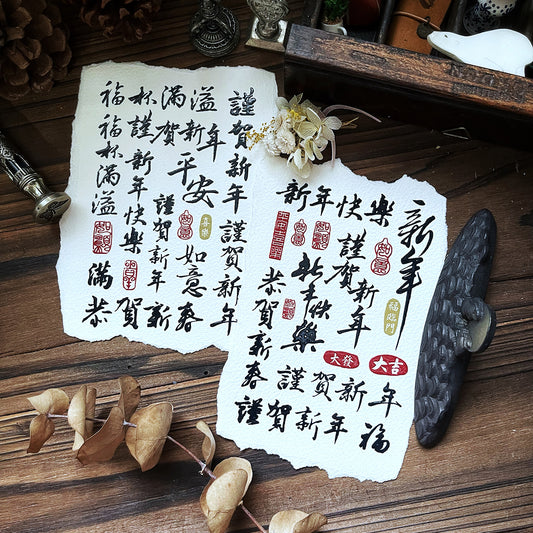 福杯滿溢
謹賀新年
福杯滿溢
謹賀新年
新年快樂
平安
謹賀新年
如意
謹賀新年
喜樂
滿
恭賀新春
新年快樂
新年
謹賀新年
恭賀新春
新年快樂
福臨門
大發
大吉
謹賀新年
謹賀新年
福